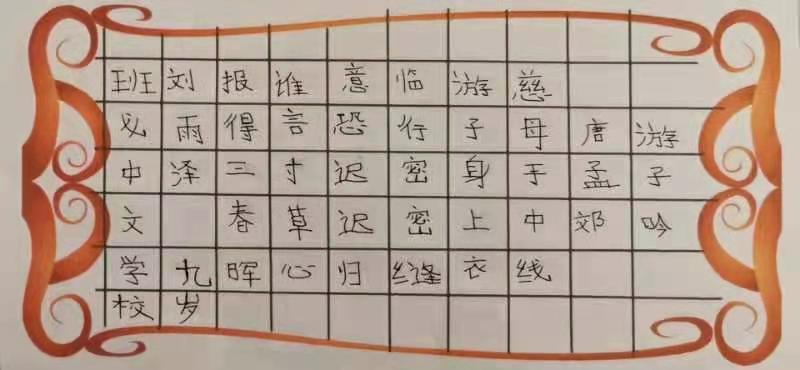 游子吟
唐孟郊
慈母手中线
游子身上衣
临行密密缝
意恐迟迟归
谁言寸草心
报得三春晖
刘雨泽 九岁
班义中文学校